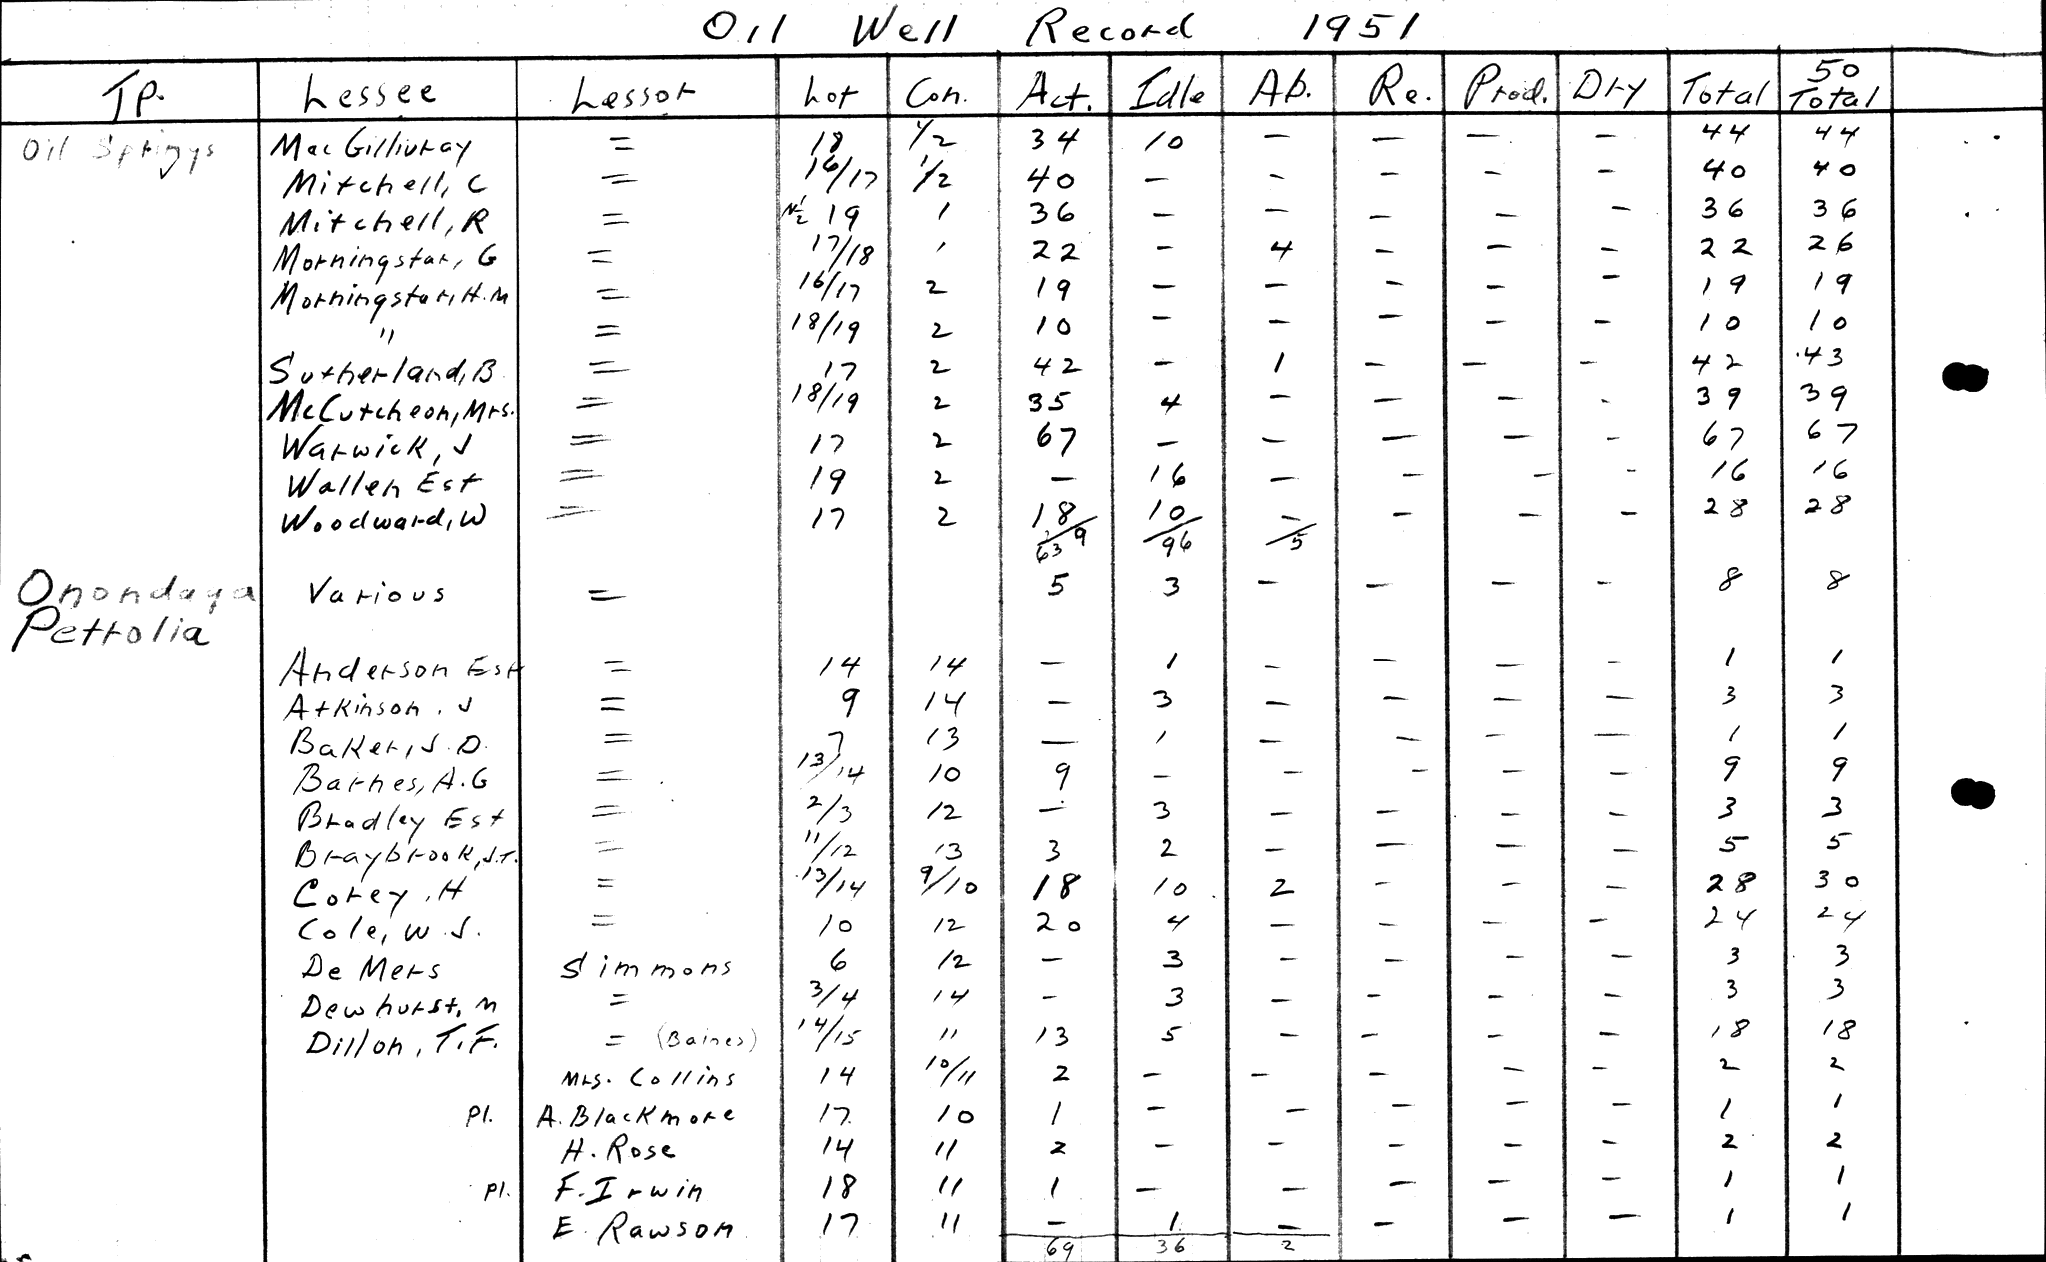 Oil Well Record 1951
TP. Lessee Lessor Lot Con. Act. Idle Ab. Re. Prod. Dry Total 50 Total
Oil Springs MacGillivray = 18 1/2 34 10 - - - - 44 44
Mitchell, C = 16/17 1/2 40 - - - - - 40 40
Mitchell, R = N½ 19 1 36 - - - - - 36 36
Morningstar, G = 17/18 1 22 - 4 - - - 22 26
Morningstar, H.M = 16/17 2 19 - - - - - 19 19
" = 18/19 2 10 - - - - - 10 10
Sutherland, B = 17 2 42 - 1 - - - 42 43
McCutcheon, Mrs. = 18/19 2 35 4 - - - - 39 39
Warwick, J = 17 2 67 - - - - - 67 67
Wallen Est = 19 2 - 16 - - - - 16 16
Woodward, W = 17 2 18 10 - - - - 28 28
639 96 5
Onondaga Various = 5 3 - - - - 8 8
Petrolia
Anderson Est = 14 14 - 1 - - - - 1 1
Atkinson. J = 9 14 - 3 - - - - 3 3
Baker, J.O. = 7 13 - 1 - - - - 1 1
Barnes, A.G = 13/14 10 9 - - - - - 9 9
Bradley Est = 2/3 12 - 3 - - - - 3 3
Braybrook, J.T. = 11/12 13 3 2 - - - - 5 5
Corey. H = 13/14 9/10 18 10 2 - - - 28 30
Cole, W.J. = 10 12 20 4 - - - - 24 24
De Mers Simmons 6 12 - 3 - - - - 3 3
Dewhurst, M = 3/4 14 - 3 - - - - 3 3
Dillon, T.F. = (Baines) 14/15 11 13 5 - - - - 18 18
Mrs. Collins 14 10/11 2 - - - - - 2 2
Pl. A. Blackmore 17 10 1 - - - - - 1 1
H. Rose 14 11 2 - - - - - 2 2
Pl. F. Irwin 18 11 1 - - - - - 1 1
E. Rawson 17 11 - 1 - - - - 1 1
69 36 2